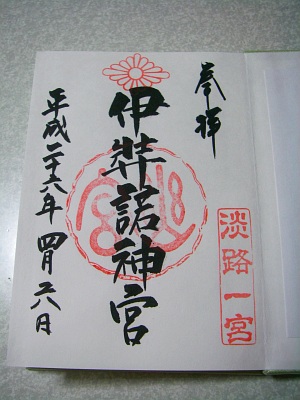 奉拝
淡路一宮
伊弉諾神宮
平成二十六年 四月六日